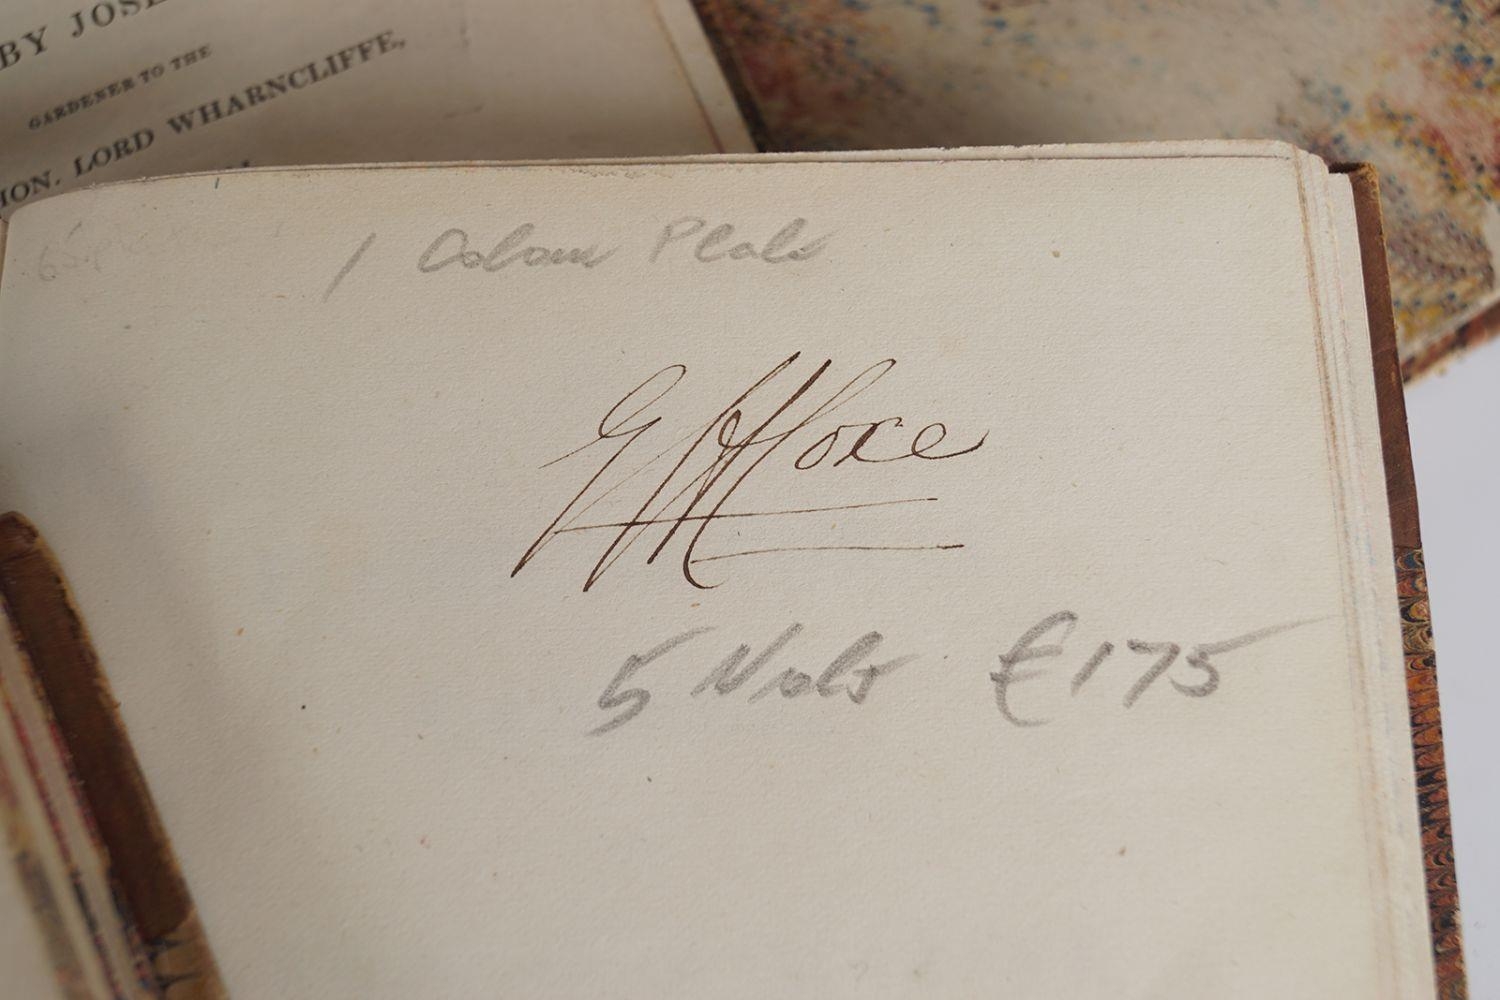 BY JOSE
GARDENER TO THE
HON. LORD WHARNCLIFFE,
1 Colour Plate
5 Vols £175